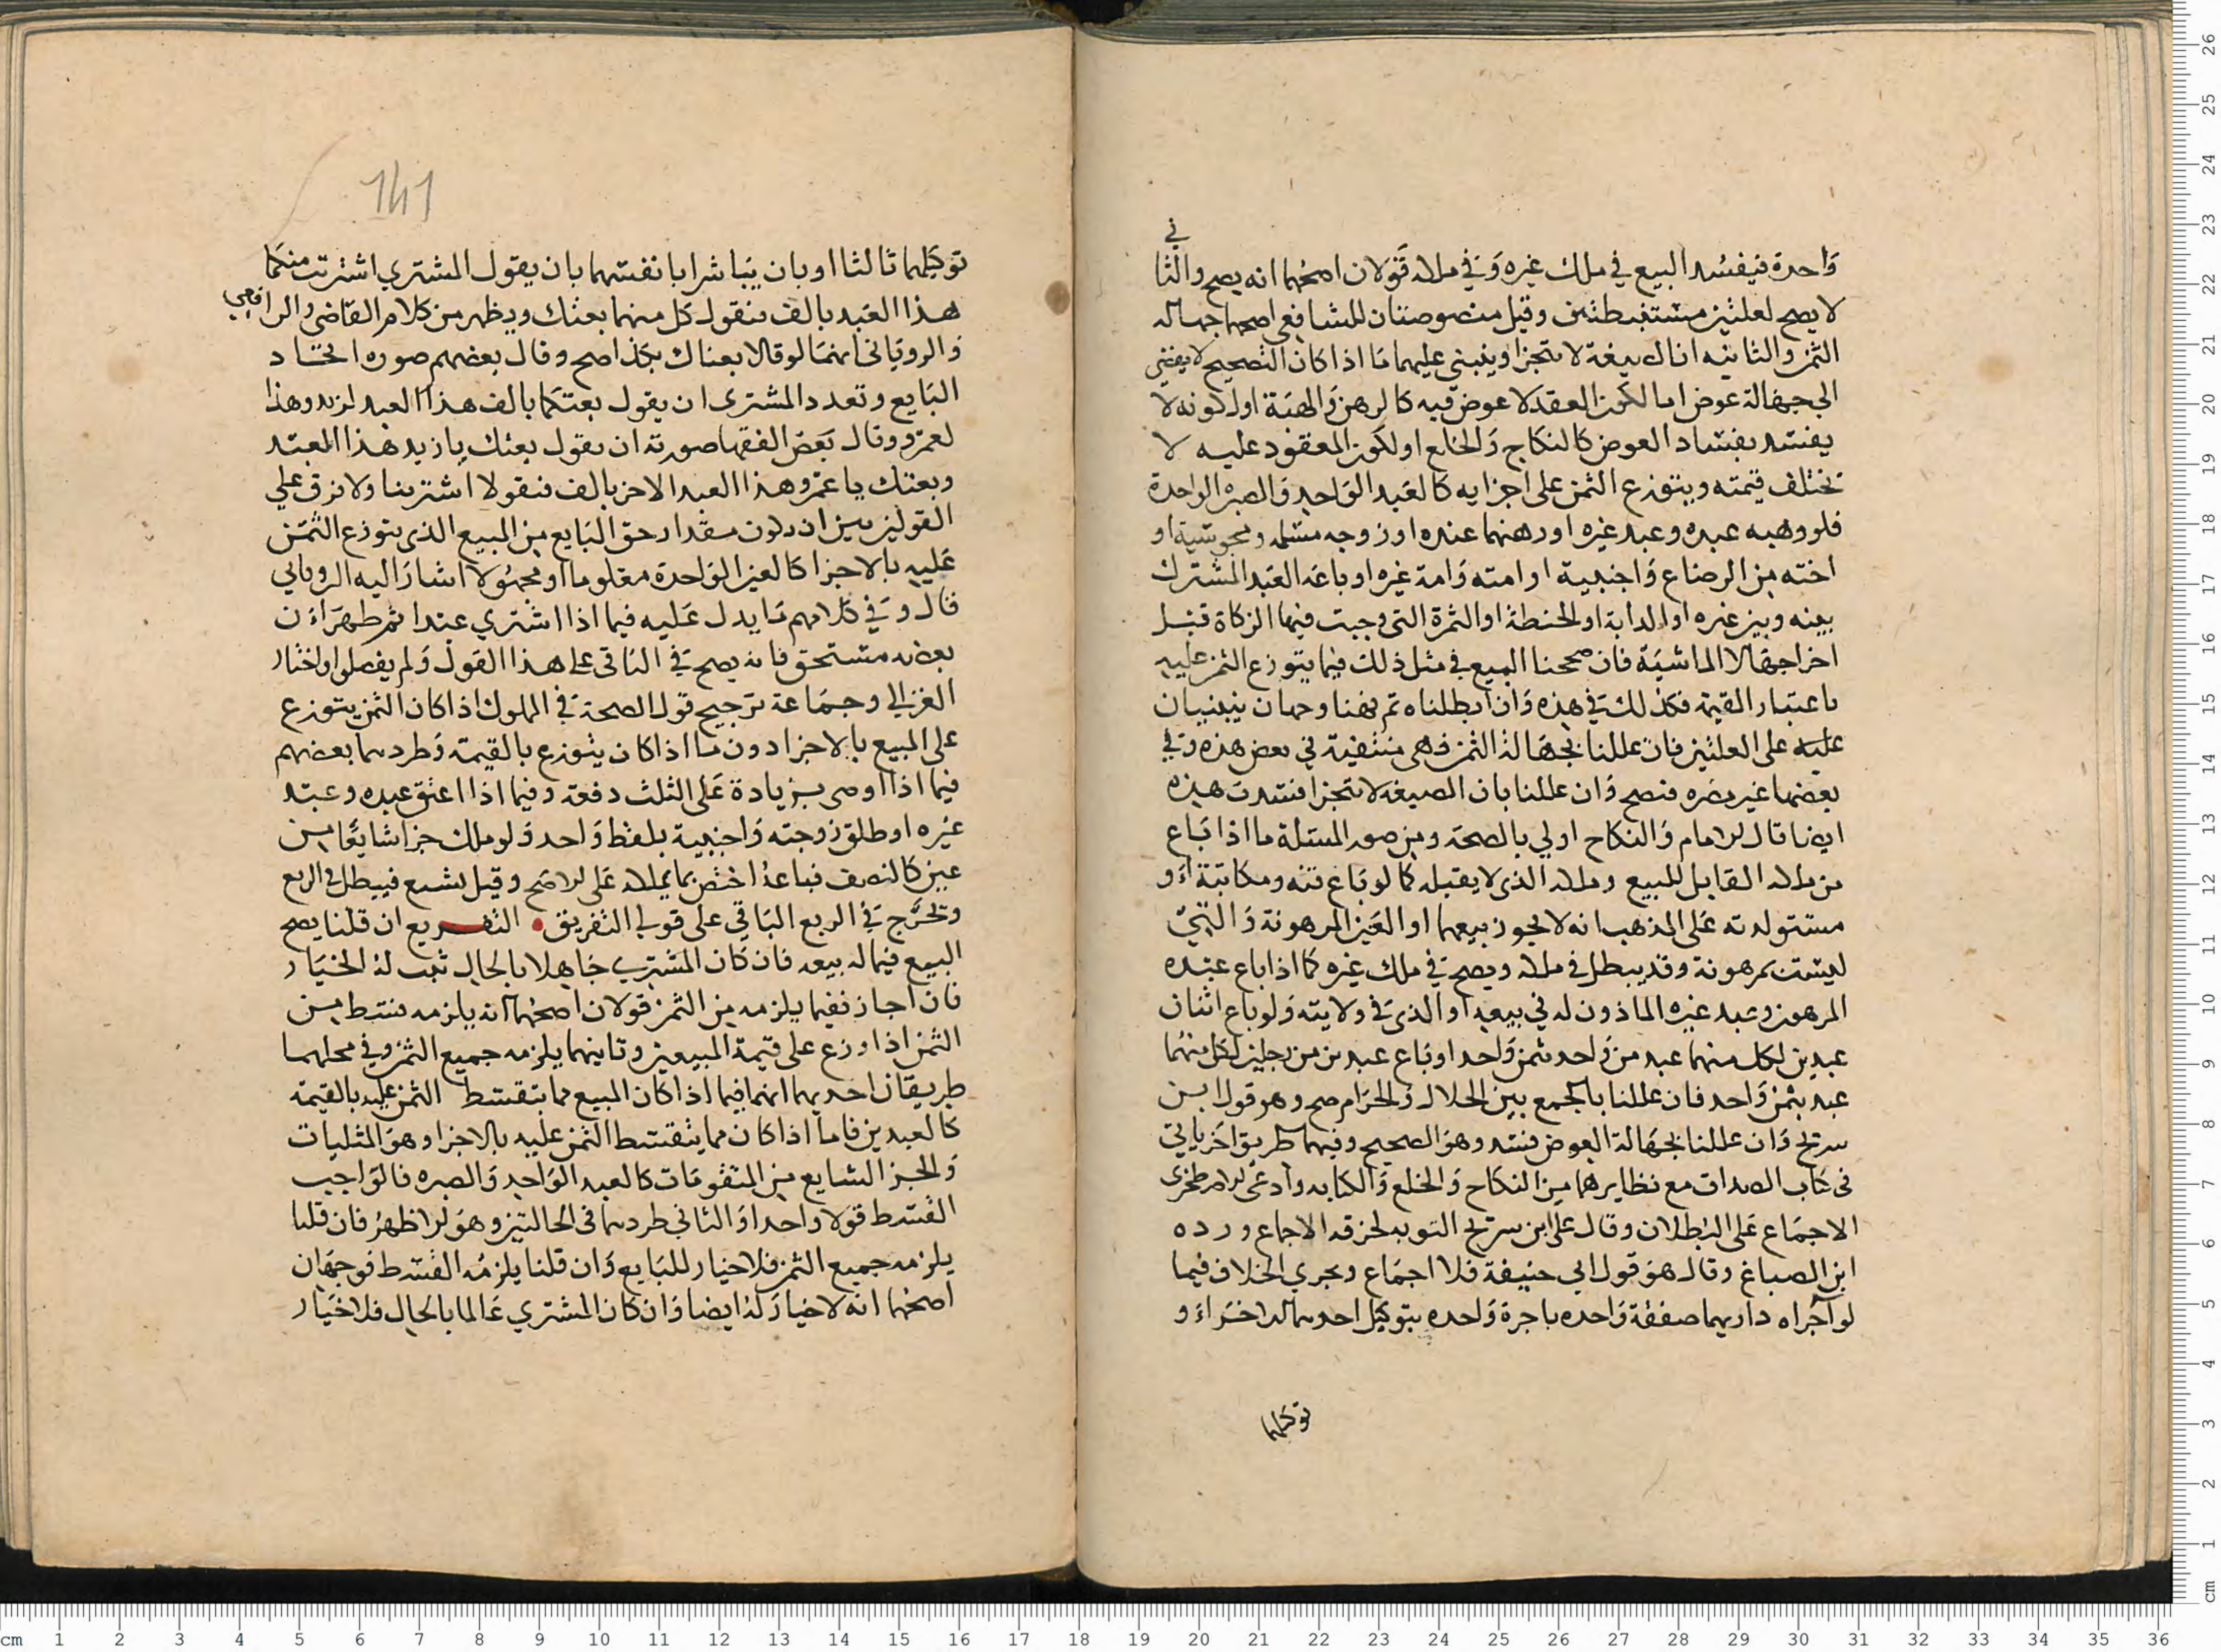 في
واحدة فيفسد البيع في ملك غيره وفي ملكه قولان اصحهما انه يصح والثا
لا يصح لعلتين مستنبطتين وقيل منصوصتان للشافعي اصحها جهاله
الثمن والثانيه ان الصيغة لا تتجزا وينبني عليهما ما اذا كان التصحيح لا يفضي
الي جهالة عوض اما لكون العقد لا عوض فيه كالرهن والهبة او لكونه لا
يفسد بفساد العوض كالنكاح والخلع او لكون المعقود عليه لا
تختلف قيمته ويتوزع الثمن على اجزايه كالعبد الواحد والصبره الواحدة
فلو وهبه عبده وعبد غيره او رهنهما عنده او زوجه مسلمه ومجوسية او
اخته من الرضاع واجنبية او امته وامة غيره او باعه العبد المشترك
بينه وبين غيره او الدابة او الحنطة او الثمرة التي وجبت فيها الزكاة قبل
اخراجها لا الماشية فان صححنا البيع في مثل ذلك فيما يتوزع الثمن عليه
باعتبار القيمة فكذلك في هذه وان ابطلناه ثم فهنا وجهان ينبنيان
عليه على العلتين فان عللنا بجهالة الثمن فهي منتفية في بعض هذه وفي
بعضها غير مضره فتصح وان عللنا بان الصيغه لا تتجزا فسدت هذه
ايضا قال الامام والنكاح اولي بالصحة ومن صور المسئلة ما اذا باع
من ملكه القابل للبيع وملكه الذي لا يقبله كما لو باع قنه ومكاتبة او
مستولدته على المذهب انه لا يجوز بيعهما او العين المرهونة والتي
ليست بمرهونة وقد يبطل في ملكه ويصح في ملك غيره كما اذا باع عبده
المرهون وعبد غيره الماذون له في بيعه او الذي في ولايته ولو باع اثنان
عبدين لكل منهما عبد من واحد بثمن واحد او باع عبدين من رجلين لكل منهما
عبد بثمن واحد فان عللنا بالجمع بين الحلال والحرام صح وهو قول ابن
سريج وان عللنا بجهالة العوض فسد وهو الصحيح وفيهما طريق اخر ياتي
في كتاب الصداق مع نظايرهما من النكاح والخلع والكتابه وادعى الاصطخري
الاجماع على البطلان وقال على ابن سريج التوبه لخرقه الاجماع ورده
ابن الصباغ وقال هو قول ابي حنيفة فلا اجماع ويجري الخلاف فيما
لو آجراه داريهما صفقة واحده باجرة واحده بتوكيل احدهما الاخر او
توكيلهما
توكيلهما ثالثا او بان يباشرا بانفسهما بان يقول المشتري اشتريت منكما
هذا العبد بالف فنقول كل منهما بعتك ويظهر من كلام القاضي والرافعي
والروياني انهما لو قالا بعناك بكذا صح وقال بعضهم صوره اتحاد
البايع وتعدد المشتري ان يقول بعتكما بالف هذا العبد لزيد وهذا
لعمرو وقال بعض الفقها صورته ان يقول بعتك يا زيد هذا العبد
وبعتك يا عمرو هذا العبد الاخر بالف فنقولا اشترينا ولا فرق علي
القولين بين ان يكون مقدار حق البايع من المبيع الذي يتوزع الثمن
عليه بالاجزا كالعين الواحدة معلوما او مجهولا اشار اليه الروياني
قال وفي كلامهم ما يدل عليه فيما اذا اشتري عبدا ثم ظهر ان
بعضه مستحق فانه يصح في الباقي على هذا القول ولم يفصلوا واختار
الغزالي وجماعة ترجيح قول الصحة في المملوك اذا كان الثمن يتوزع
على المبيع بالاجزا دون ما اذا كان يتوزع بالقيمة وطردهما بعضهم
فيما اذا اوصى بزيادة على الثلث دفعة وفيما اذا اعتق عبده وعبد
غيره او طلق زوجته واجنبية بلفظ واحد ولو ملك جزا شايعا من
عين كالنصف فباعه اختص بما يملكه على الاصح وقيل يشيع فيبطل في الربع
وتخرج في الربع الباقي على قولي التفريق • التفريع ان قلنا يصح
البيع فيما له بيعه فان كان المشتري جاهلا بالحال ثبت له الخيار
فان اجاز ففيما يلزمه من الثمن قولان اصحهما انه يلزمه قسط من
الثمن اذا وزع على قيمة المبيعين وثانيهما يلزمه جميع الثمن وفي محلهما
طريقان احديهما انهما فيما اذا كان المبيع مما يتقسط الثمن عليه بالقيمة
كالعبدين فاما اذا كان مما يتقسط الثمن عليه بالاجزا وهو المثليات
والجز الشايع من المتقومات كالعبد الواحد والصبره فالواجب
القسط قولا واحدا والثاني طردهما في الحالتين وهو الاظهر فان قلنا
يلزمه جميع الثمن فلا خيار للبايع وان قلنا يلزمه القسط فوجهان
اصحهما انه لا خيار له ايضا وان كان المشتري عالما بالحال فلا خيار
141